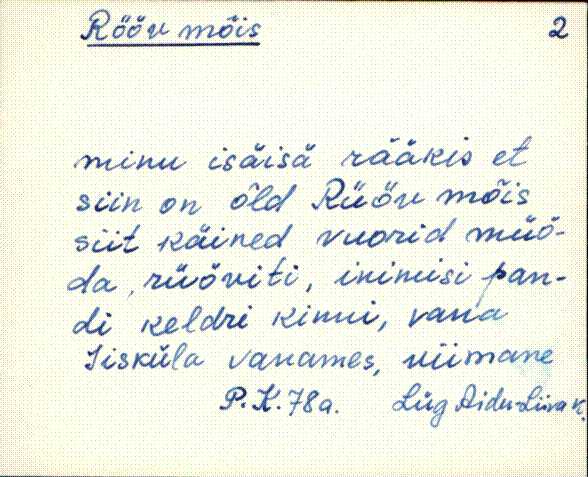 Röövmõis 2
minu isäisä rääkis et
siin on õld Rüövmõis
siit käined vuorid müö-
da, rüöviti, inimisi pan-
di keldri kinni, vana
Iisküla vanames, viimane
P.K.78a. Lüg Aidu-Liiva k.